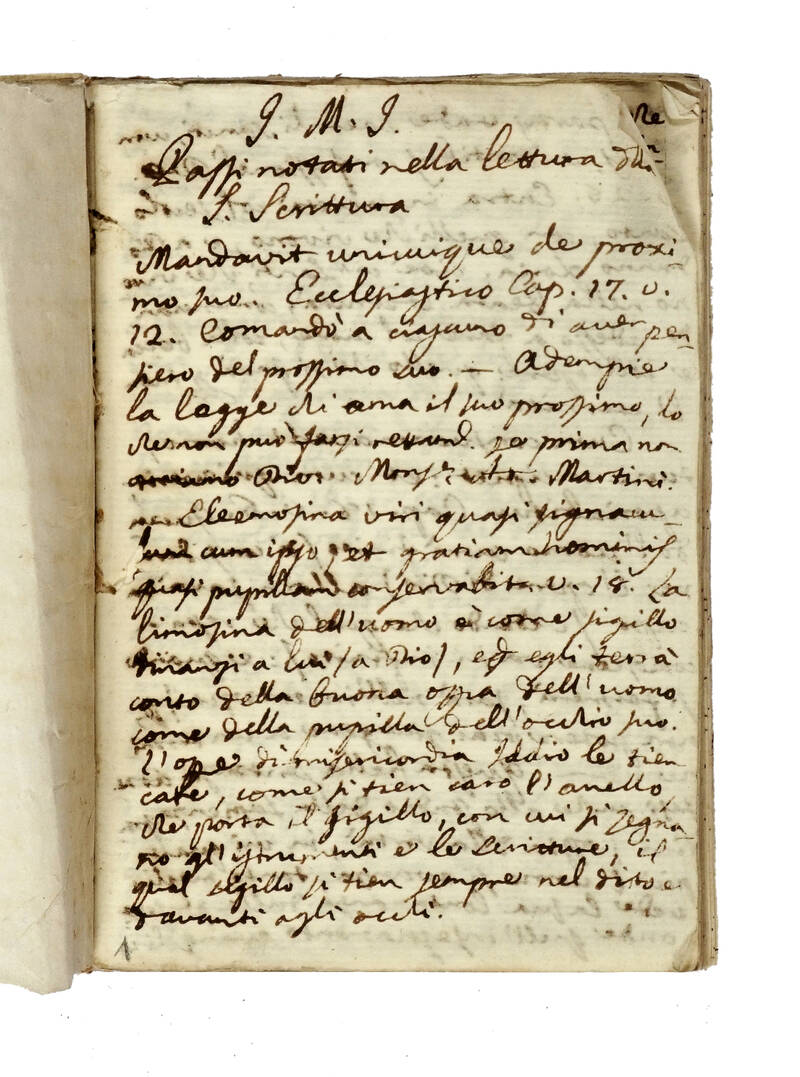 J. M. J.
Passi notati nella lettura della
S. Scrittura
Mandavit unicuique de proxi-
mo suo. Ecclesiastico Cap. 17. v.
12. Comandò a ciascuno di aver pen-
siero del prossimo suo. — Adempie
la legge chi ama il suo prossimo, lo
che non può farsi se prima non
amiamo Dio. Monsr. Martini.
Eleemosina viri quasi signacu-
lum cum ipso, et gratiam hominis
quasi pupillam conservabit. v. 18. La
limosina dell'uomo è come sigillo
dinanzi a lui (a Dio), ed egli terrà
conto della buona opra dell'uomo
come della pupilla dell'occhio suo.
L'ope di misericordia Iddio le tien
care, come si tien caro l'anello,
che porta il sigillo, con cui si segna-
no gl'istrumenti e le scritture, il
qual sigillo si tien sempre nel dito e
davanti agli occhi.
1